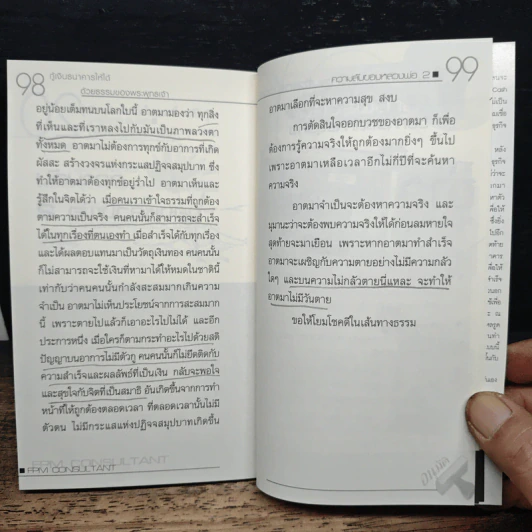 98
กู้เงินธนาคารให้ได้
ด้วยธรรมของพระพุทธเจ้า
อยู่น้อยเต็มทนบนโลกใบนี้ อาตมามองว่า ทุกสิ่ง
ที่เห็นและที่เราหลงไปกับมันเป็นภาพลวงตา
ทั้งหมด อาตมาไม่ต้องการทุกข์กับอาการที่เกิด
ผัสสะ สร้างวงจรแห่งกระแสปฏิจจสมุปบาท ซึ่ง
ทำให้อาตมาต้องทุกข์อยู่ร่ำไป อาตมาเห็นและ
รู้สึกในจิตได้ว่า เมื่อคนเราเข้าใจธรรมที่ถูกต้อง
ตามความเป็นจริง คนคนนั้นก็สามารถจะสำเร็จ
ได้ในทุกเรื่องที่ตนเองทำ เมื่อสำเร็จได้กับทุกเรื่อง
และได้ผลตอบแทนมาเป็นวัตถุเงินทอง คนคนนั้น
ก็ไม่สามารถจะใช้เงินที่หามาได้ให้หมดในชาตินี้
เท่ากับว่าคนคนนั้นกำลังสะสมมากเกินความ
จำเป็น อาตมาไม่เห็นประโยชน์จากการสะสมมาก
นี้ เพราะตายไปแล้วก็เอาอะไรไปไม่ได้ และอีก
ประการหนึ่ง เมื่อใครก็ตามกระทำอะไรไปด้วยสติ
ปัญญาบนอาการไม่มีตัวกู คนคนนั้นก็ไม่ยึดติดกับ
ความสำเร็จและผลลัพธ์ที่เป็นเงิน กลับจะพอใจ
และสุขใจกับจิตที่เป็นสมาธิ อันเกิดขึ้นจากการทำ
หน้าที่ให้ถูกต้องตลอดเวลา ที่ตลอดเวลานั้นไม่มี
ตัวตน ไม่มีกระแสแห่งปฏิจจสมุปบาทเกิดขึ้น
PPM CONSULTANT
ความลับของหลวงพ่อ 2
99
อาตมาเลือกที่จะหาความสุข สงบ
การตัดสินใจออกบวชของอาตมา ก็เพื่อ
ต้องการรู้ความจริงให้ถูกต้องมากยิ่งๆ ขึ้นไป
เพราะอาตมาเหลือเวลาอีกไม่กี่ปีที่จะค้นหา
ความจริง
อาตมาจำเป็นจะต้องหาความจริง และ
มุมานะว่าจะต้องพบความจริงให้ได้ก่อนลมหายใจ
สุดท้ายจะมาเยือน เพราะหากอาตมาทำสำเร็จ
อาตมาจะเผชิญกับความตายอย่างไม่มีความกลัว
ใดๆ และบนความไม่กลัวตายนี่แหละ จะทำให้
อาตมาไม่มีวันตาย
ขอให้โยมโชคดีในเส้นทางธรรม